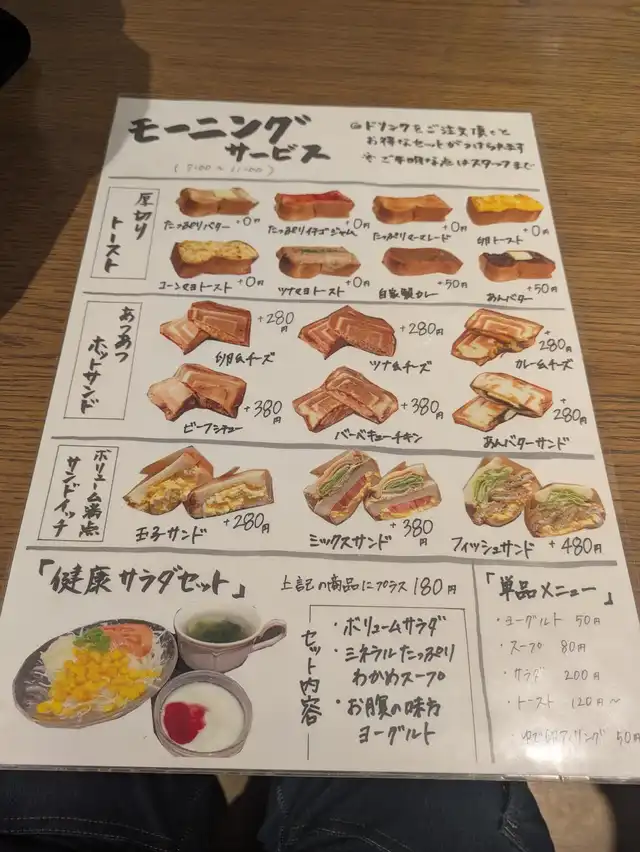 モーニング
サービス
◎ドリンクをご注文頂くと
お得なセットがつけられます
※ご不明な点はスタッフまで
厚切り
トースト
たっぷりバター +0円
たっぷりイチゴジャム +0円
たっぷりマーマレード +0円
卵トースト +0円
コーンマヨトースト +0円
ツナマヨトースト +0円
自家製カレー +50円
あんバター +50円
あつあつ
ホットサンド
卵&チーズ +280円
ツナ&チーズ +280円
カレー&チーズ +280円
ビーフシチュー +380円
バーベキューチキン +380円
あんバターサンド +280円
ボリューム満点
サンドイッチ
玉子サンド +280円
ミックスサンド +380円
フィッシュサンド +480円
「健康サラダセット」 上記の商品にプラス180円
セット内容
・ボリュームサラダ
・ミネラルたっぷり
わかめスープ
・お腹の味方
ヨーグルト
「単品メニュー」
・ヨーグルト 50円
・スープ 80円
・サラダ 200円
・トースト 120円〜
50円